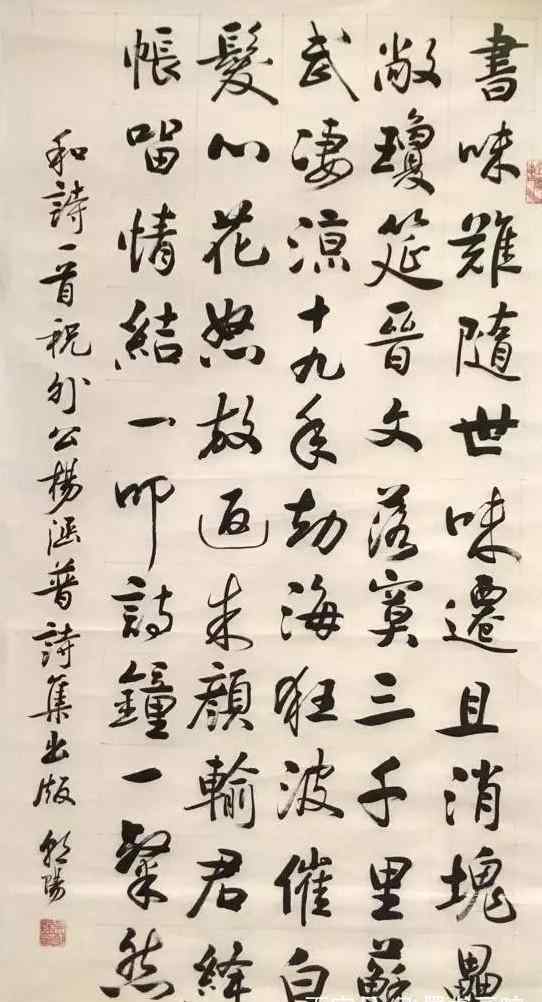 書味難隨世味遷且消塊壘
敞瓊筵晉文落寞三千里蘇
武淒涼十九年劫海狂波催白
髮心花怒放返朱顏輸君絳
帳留情結一叩詩鐘一粲然
和詩一首祝外公楊涵普詩集出版 陽